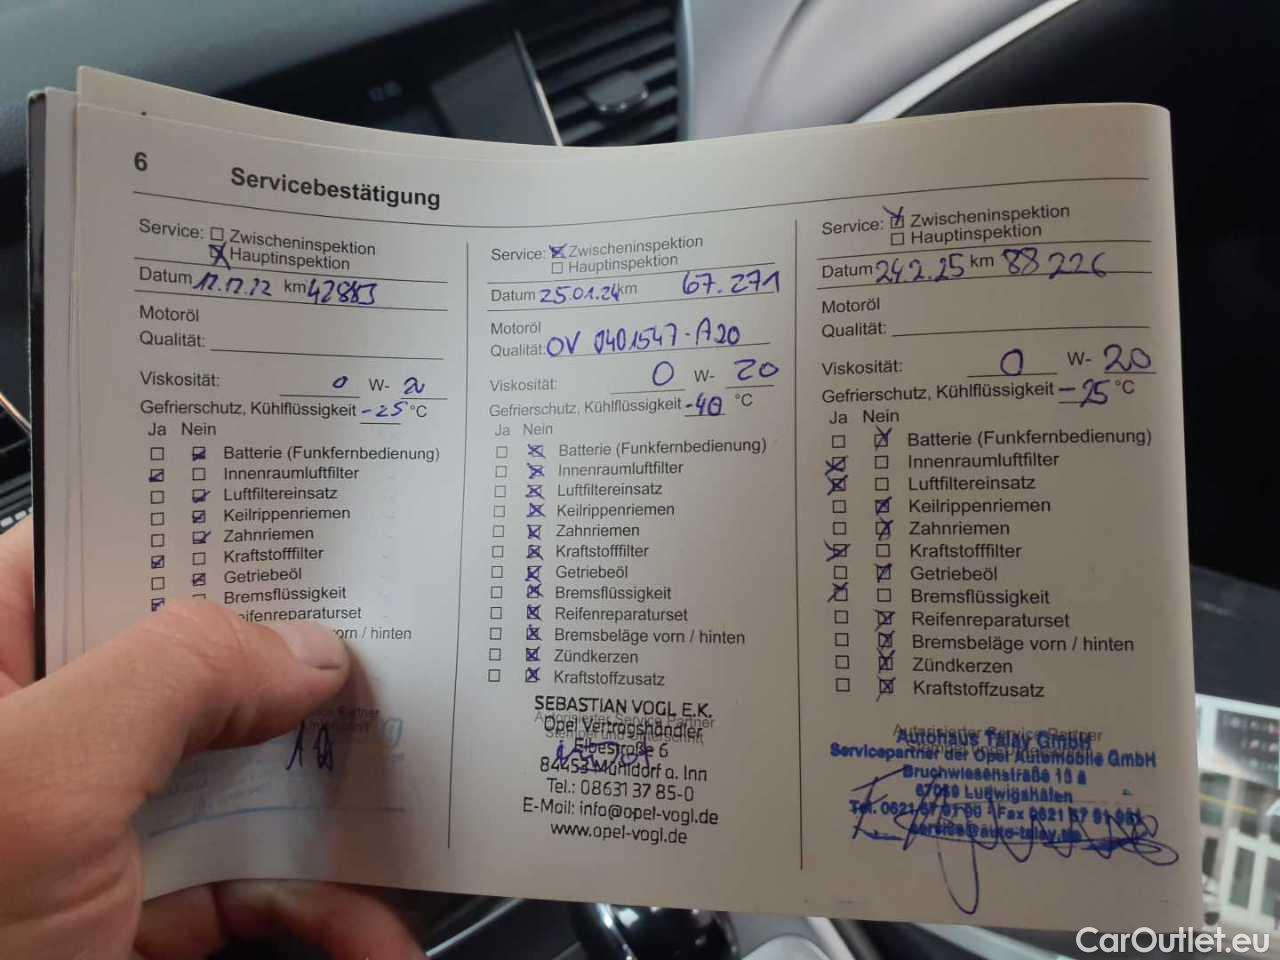 6 Servicebestätigung
Service: Zwischeninspektion
Hauptinspektion
Datum 12.12.22 km 42883
Motoröl
Qualität:
Viskosität: 0 W- 20
Gefrierschutz, Kühlflüssigkeit -25 °C
Ja Nein
Batterie (Funkfernbedienung)
Innenraumluftfilter
Luftfiltereinsatz
Keilrippenriemen
Zahnriemen
Kraftstofffilter
Getriebeöl
Bremsflüssigkeit
eifenreparaturset
orn / hinten
Service: Zwischeninspektion
Hauptinspektion
Datum 25.01.24 km 67.271
Motoröl
Qualität: OV 0401547-A20
Viskosität: 0 W- 20
Gefrierschutz, Kühlflüssigkeit -40 °C
Ja Nein
Batterie (Funkfernbedienung)
Innenraumluftfilter
Luftfiltereinsatz
Keilrippenriemen
Zahnriemen
Kraftstofffilter
Getriebeöl
Bremsflüssigkeit
Reifenreparaturset
Bremsbeläge vorn / hinten
Zündkerzen
Kraftstoffzusatz
SEBASTIAN VOGL E.K.
Autorisierter Service Partner
Opel Vertragshändler
Elbestraße 6
84453 Mühldorf a. Inn
Tel.: 08631 37 85-0
E-Mail: info@opel-vogl.de
www.opel-vogl.de
Service: Zwischeninspektion
Hauptinspektion
Datum 24.2.25 km 88226
Motoröl
Qualität:
Viskosität: 0 W- 20
Gefrierschutz, Kühlflüssigkeit -25 °C
Ja Nein
Batterie (Funkfernbedienung)
Innenraumluftfilter
Luftfiltereinsatz
Keilrippenriemen
Zahnriemen
Kraftstofffilter
Getriebeöl
Bremsflüssigkeit
Reifenreparaturset
Bremsbeläge vorn / hinten
Zündkerzen
Kraftstoffzusatz
Autorisierter Service Partner
Autohaus Talay GmbH
Servicepartner der Opel Automobile GmbH
Bruchwiesenstraße
67059 Ludwigshafen
service@auto-talay.de
CarOutlet.eu